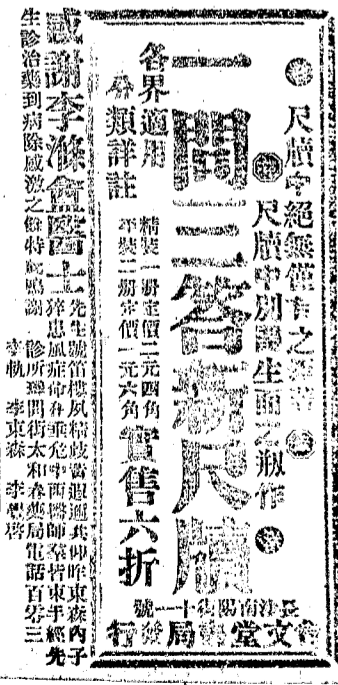 尺牘中絕無僅有之
尺牘中別開生面之瓶作
一問三答新尺牘
各界適用
分類詳註
精裝一册定價二元四角
平裝二册定價一元六角
實售六折
長沙南陽街十一號
文堂書局發行
感謝李滌盦醫士
先生號笛樓夙精歧黃遐邇共仰昨東森內子
猝患風症仰臥垂危中西醫師羣皆束手經先
生診治藥到病除感激之餘特此鳴謝
診所理問街太和春藥局電話百零三
李軌 李東森 李 啓